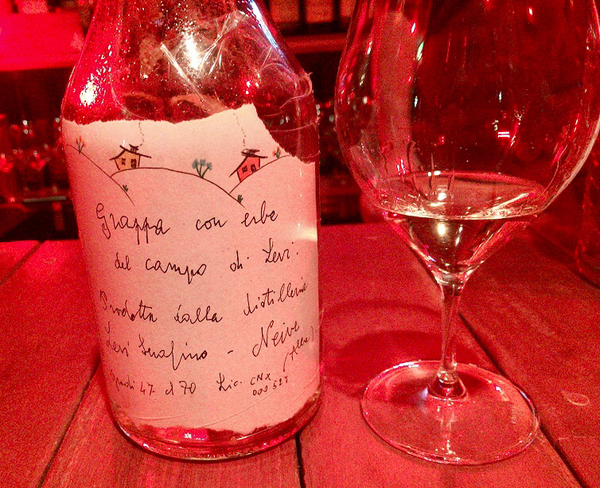 Grappa con erbe
del campo di Levi.
Prodotta dalla distilleria
Levi Serafino - Neive
(Alba)
gradi 47 cl 70 Lic. CNX